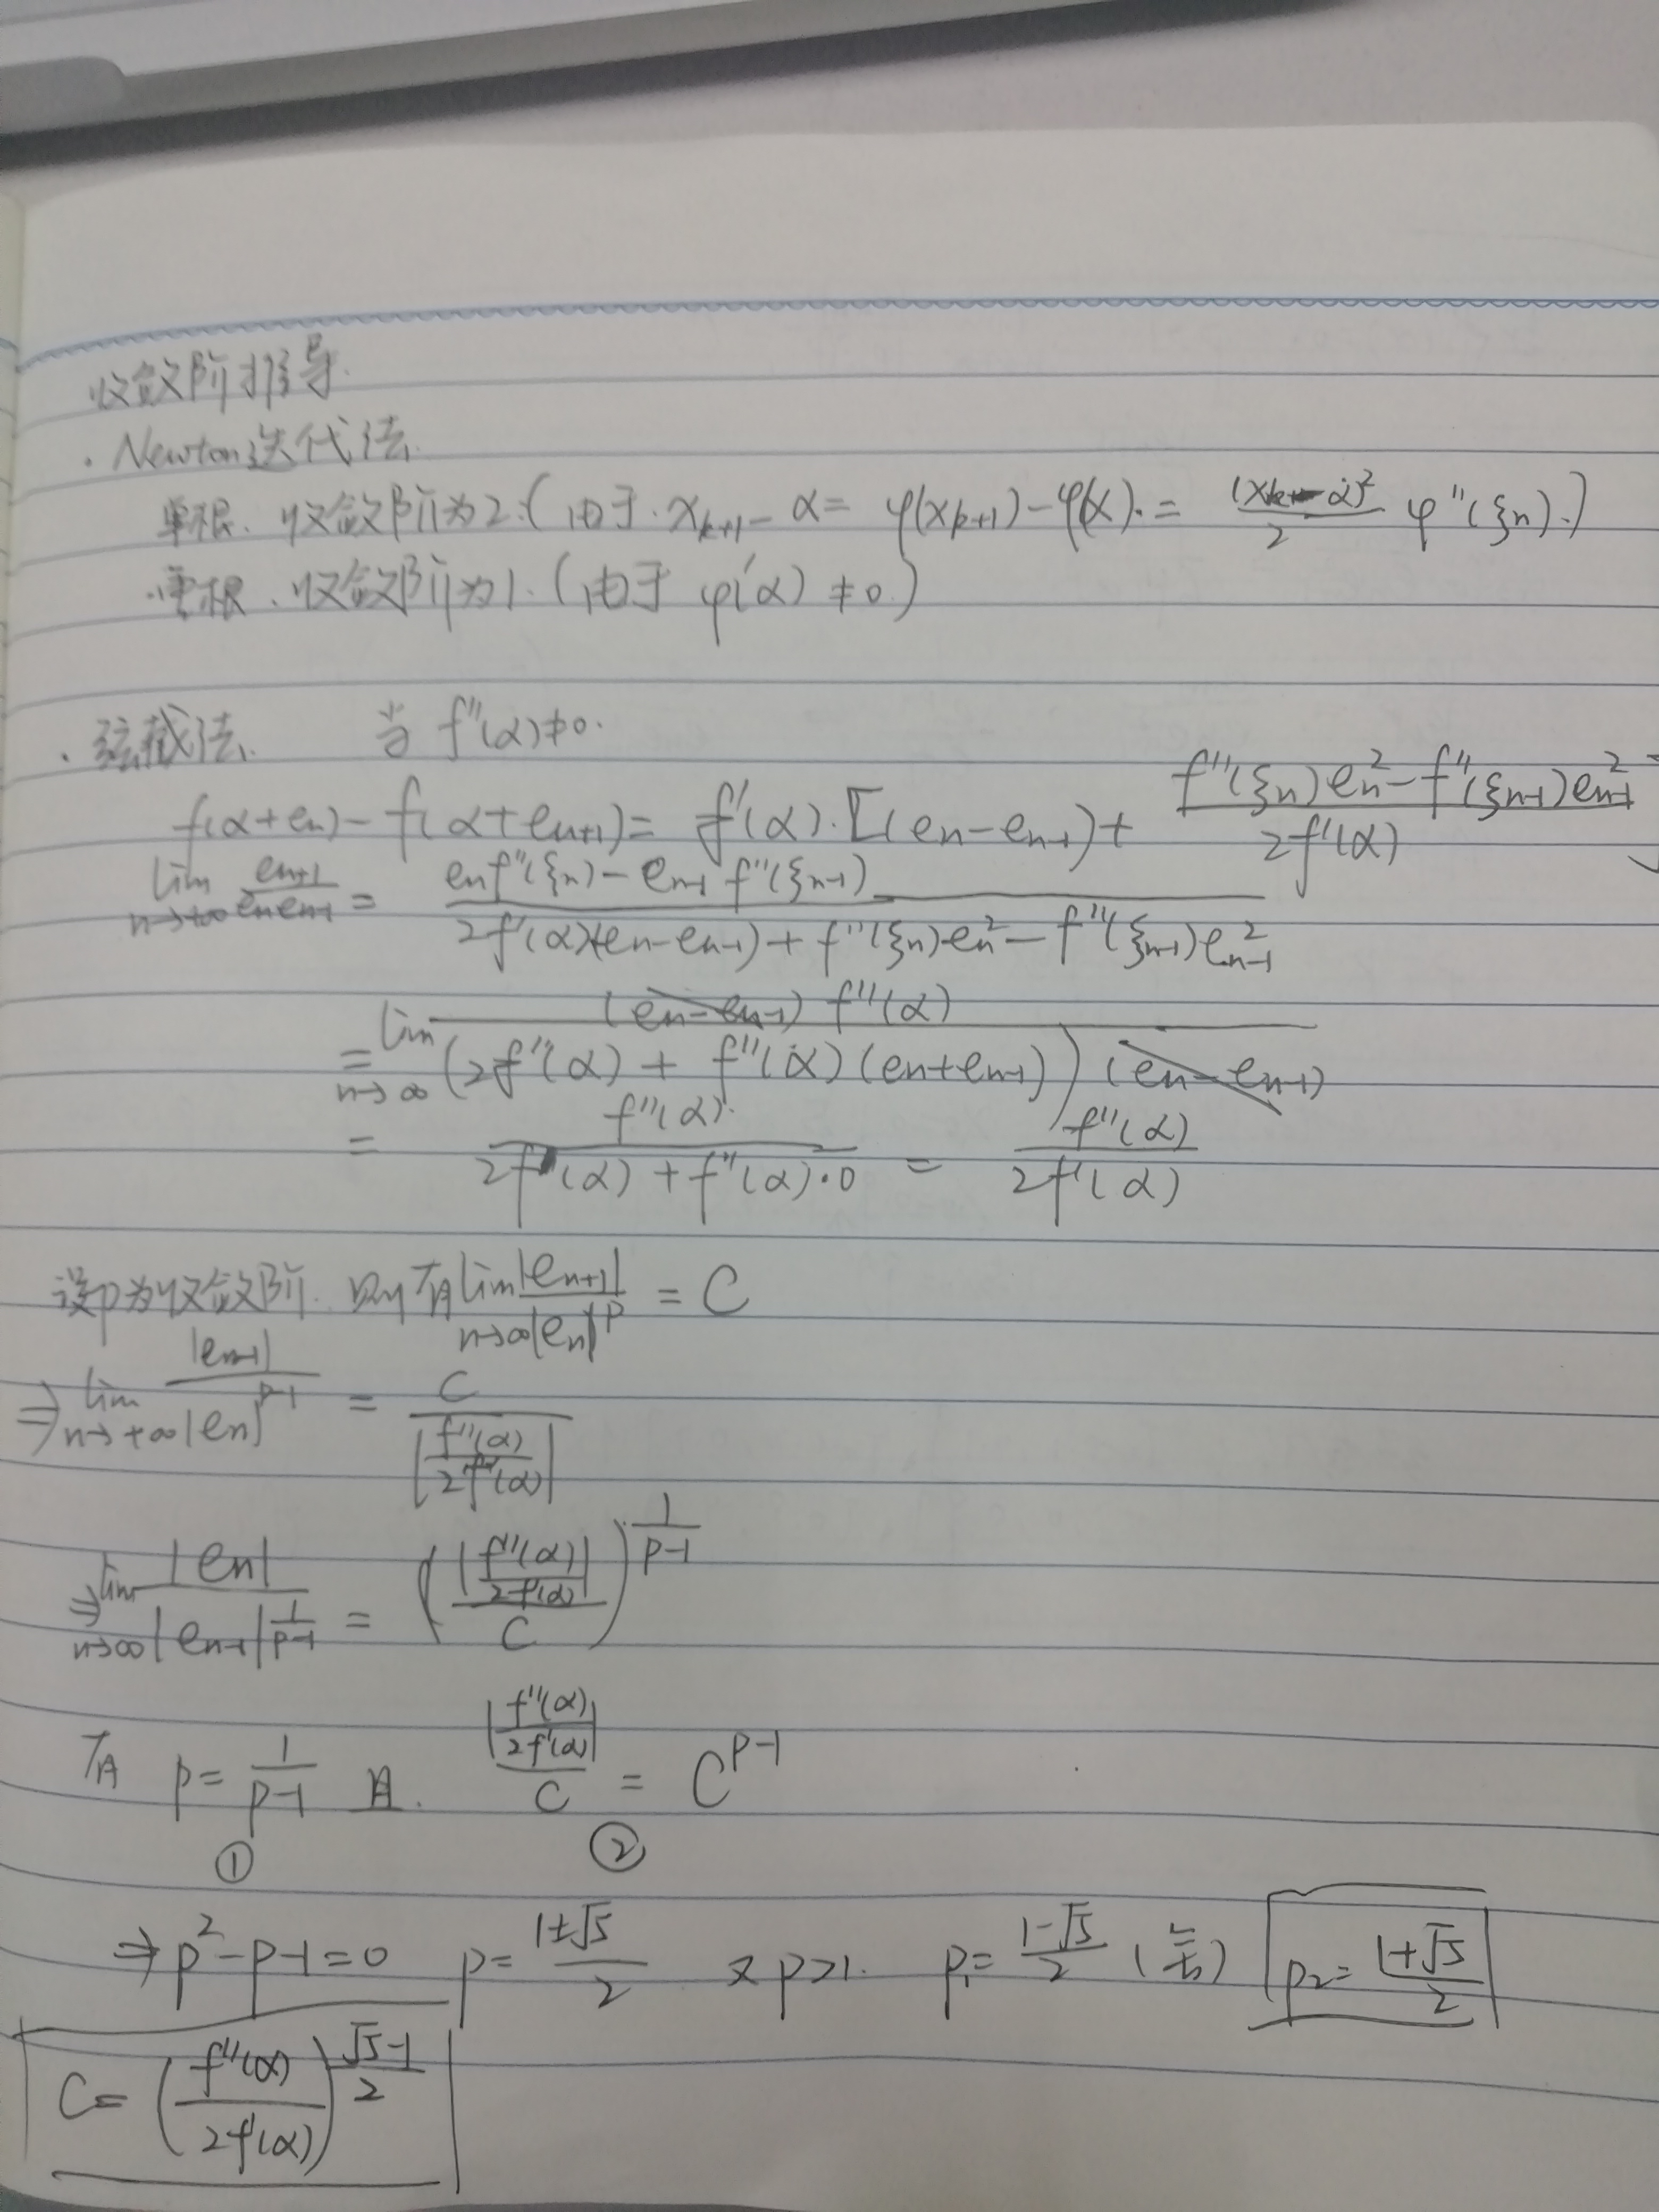 收敛阶推导.
· Newton迭代法.
单根. 收敛阶为2.(由于. x_{k+1} - α = φ(x_{k+1}) - φ(α). = (x_k - α)²/2 φ''(ξn).)
重根. 收敛阶为1. (由于 φ'(α) ≠ 0)
· 弦截法. 当 f''(α) ≠ 0.
f(α+en) - f(α+e_{n+1}) = f'(α).[(en - e_{n-1}) + (f''(ξn)en² - f''(ξ_{n-1})e_{n-1}²)/(2f'(α))]
lim_{n→+∞} e_{n+1}/(en e_{n-1}) = (en f''(ξn) - e_{n-1} f''(ξ_{n-1}))/(2f'(α)(en - e_{n-1}) + f''(ξn)en² - f''(ξ_{n-1})e_{n-1}²)
= lim_{n→∞} ((en - e_{n-1}) f''(α))/((2f''(α) + f''(α)(en + e_{n-1}))(en - e_{n-1}))
= f''(α)./(2f'(α) + f''(α)·0) = f''(α)/(2f'(α))
设p为收敛阶. 则有 lim_{n→∞} |e_{n+1}|/|en|^p = C
⇒ lim_{n→+∞} |e_{n-1}|/|en|^{p-1} = C/|f''(α)/(2f'(α))|
⇒ lim_{n→∞} |en|/|e_{n-1}|^{1/(p-1)} = (|f''(α)/(2f'(α))|/C)^{1/(p-1)}
有 p = 1/(p-1) 且. |f''(α)/(2f'(α))|/C = C^{p-1}
① ②
⇒ p² - p - 1 = 0 p = (1±√5)/2 又 p>1. p₁ = (1-√5)/2 (舍) p₂ = (1+√5)/2
C = (f''(α)/(2f'(α)))^{(√5-1)/2}